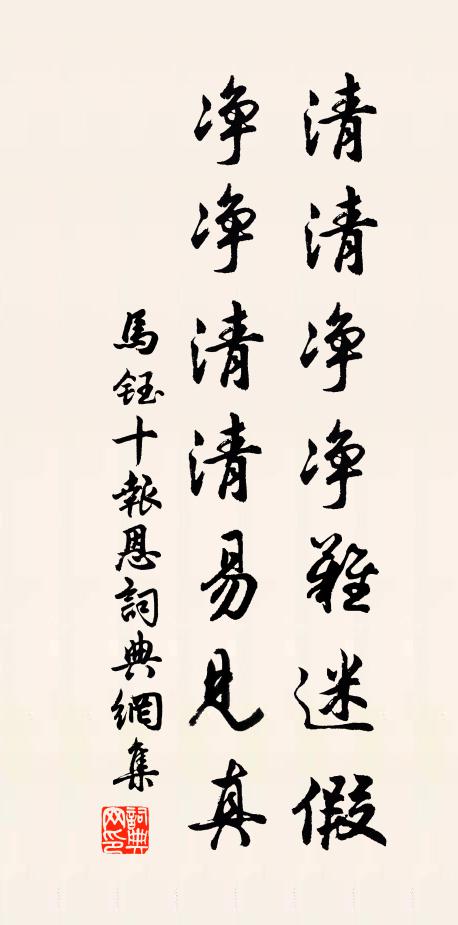 清清净净難迷假
净净清清易見真
馬鈺十報恩詞典網集
詞典網印